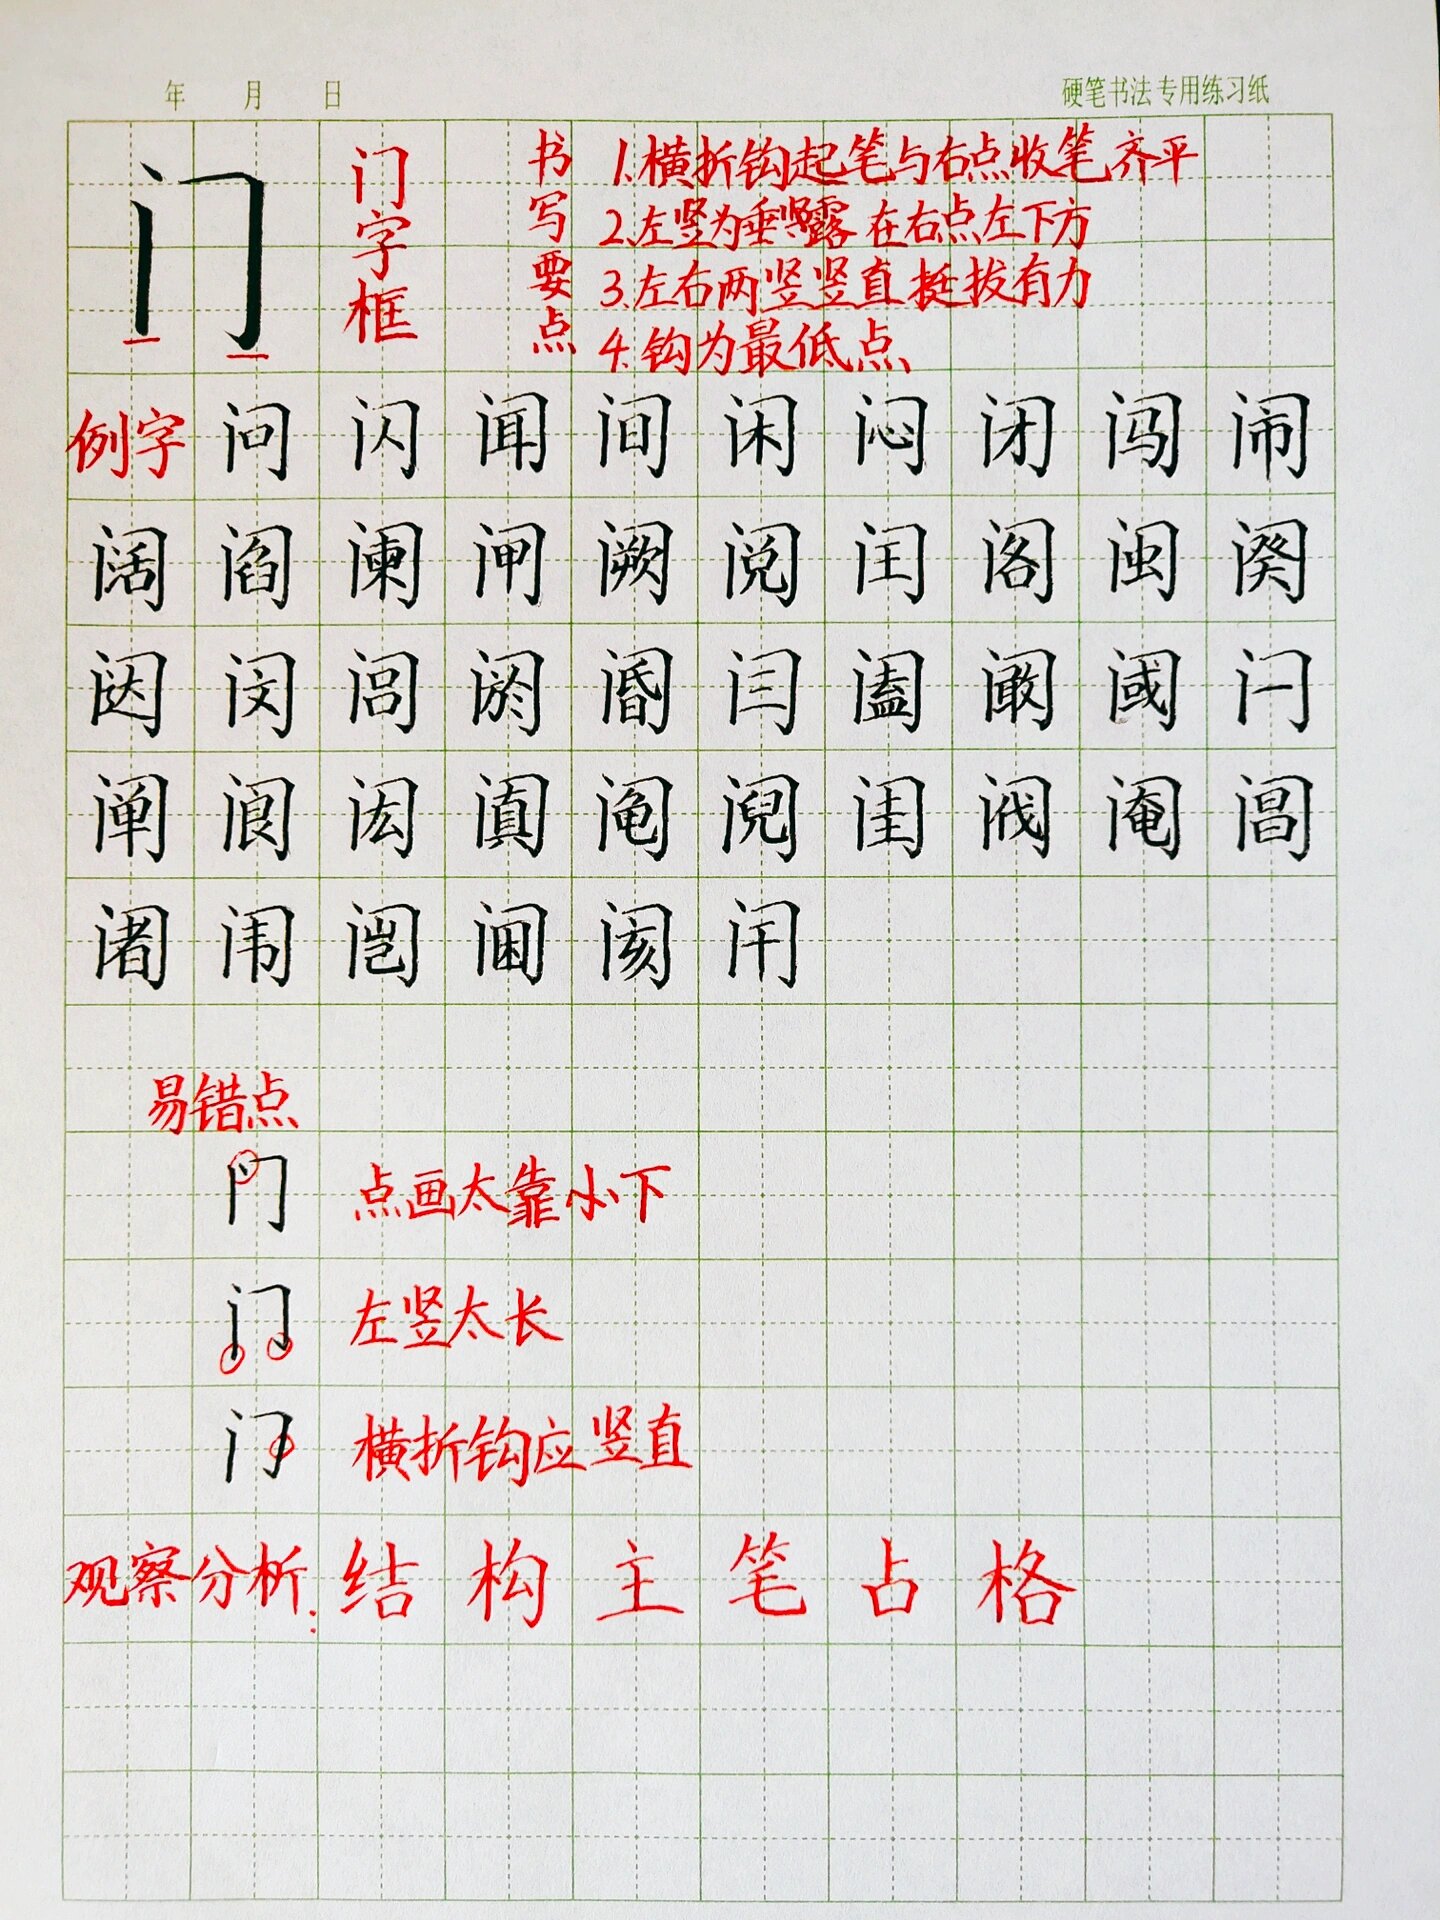 年 月 日 硬笔书法专用练习纸
门 门字框 书写要点
1.横折钩起笔与右点收笔齐平
2.左竖为垂露竖在右点左下方
3.左右两竖竖直挺拔有力
4.钩为最低点
例字 问 闪 闻 间 闲 闷 闭 闯 闹
阔 阎 阑 闸 阙 阅 闰 阁 闽 阕
闼 闵 闾 阏 阍 闫 阖 阚 阈 闩
阐 阆 闳 阗 阄 阋 闺 阀 阉 阊
阇 闱 闿 阃 阂 闬
易错点
门 点画太靠下
门 左竖太长
门 横折钩应竖直
观察分析: 结构 主笔 占格